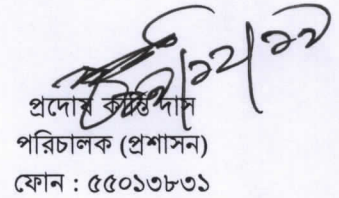 প্রদোষ কান্তি দাস
পরিচালক (প্রশাসন)
ফোন : ৫৫০১৩৮৩১